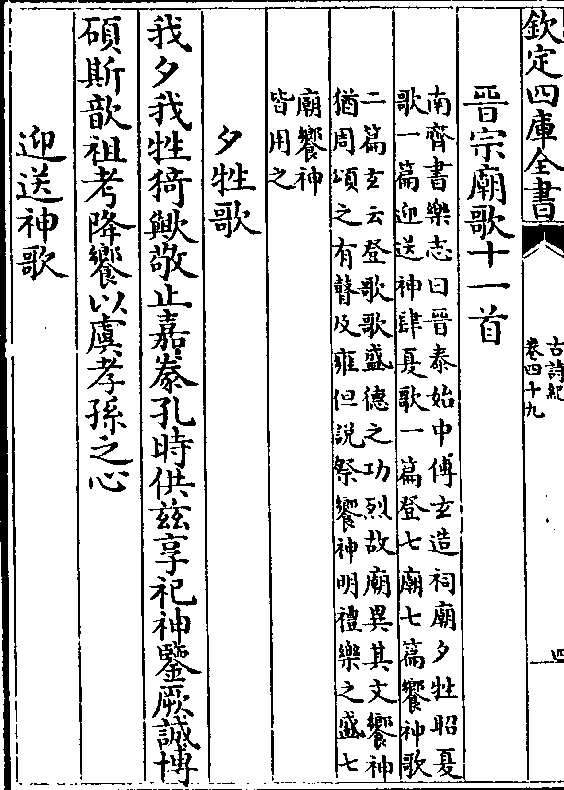 欽定四庫全書
古詩紀
卷四十九
四
晉宗廟歌十一首
南齊書樂志曰晉泰始中傅玄造祠廟夕牲昭夏
歌一篇迎送神肆夏歌一篇登七廟七篇饗神歌
二篇玄云登歌歌盛德之功烈故廟異其文饗神
猶周頌之有瞽及雍但說祭饗神明禮樂之盛七
廟饗神
皆用之
夕牲歌
我夕我牲猗歟敬止嘉豢孔時供茲享祀神鑒厥誠博
碩斯歆祖考降饗以虞孝孫之心
迎送神歌